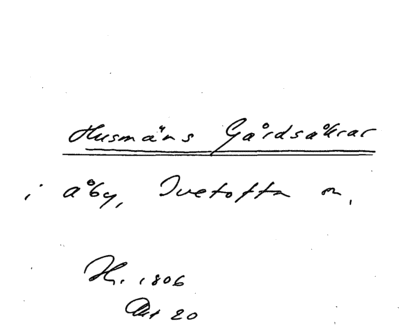 Husmäns Gårdsåkrar
i åby, Ivetofta sn.
H. 1806
Akt 20